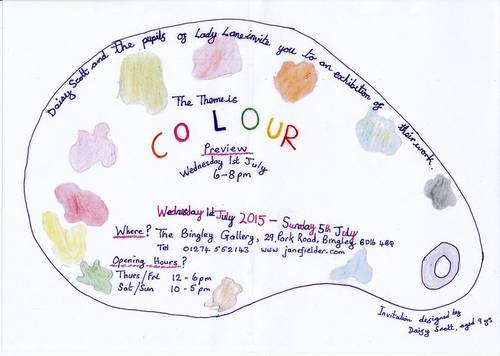 Daisy Scott and the pupils of Lady Lane invite you to an exhibition of their work.
The Theme is
COLOUR
Preview
Wednesday 1st July
6-8pm
Wednesday 1st July 2015 - Sunday 5th July
Where? The Bingley Gallery, 29, Park Road, Bingley. BD16 4BQ
Tel 01274 552143 www janefielder.com
Opening Hours?
Thurs/Fri 12-6pm
Sat/Sun 10-5pm
Invitation designed by
Daisy Scott, aged 9 yrs